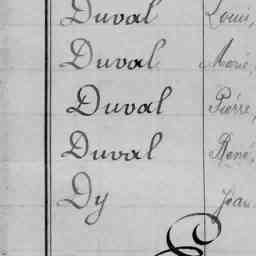 Duval Louis,
Duval Marie,
Duval Pierre,
Duval René,
Dy Jean
E